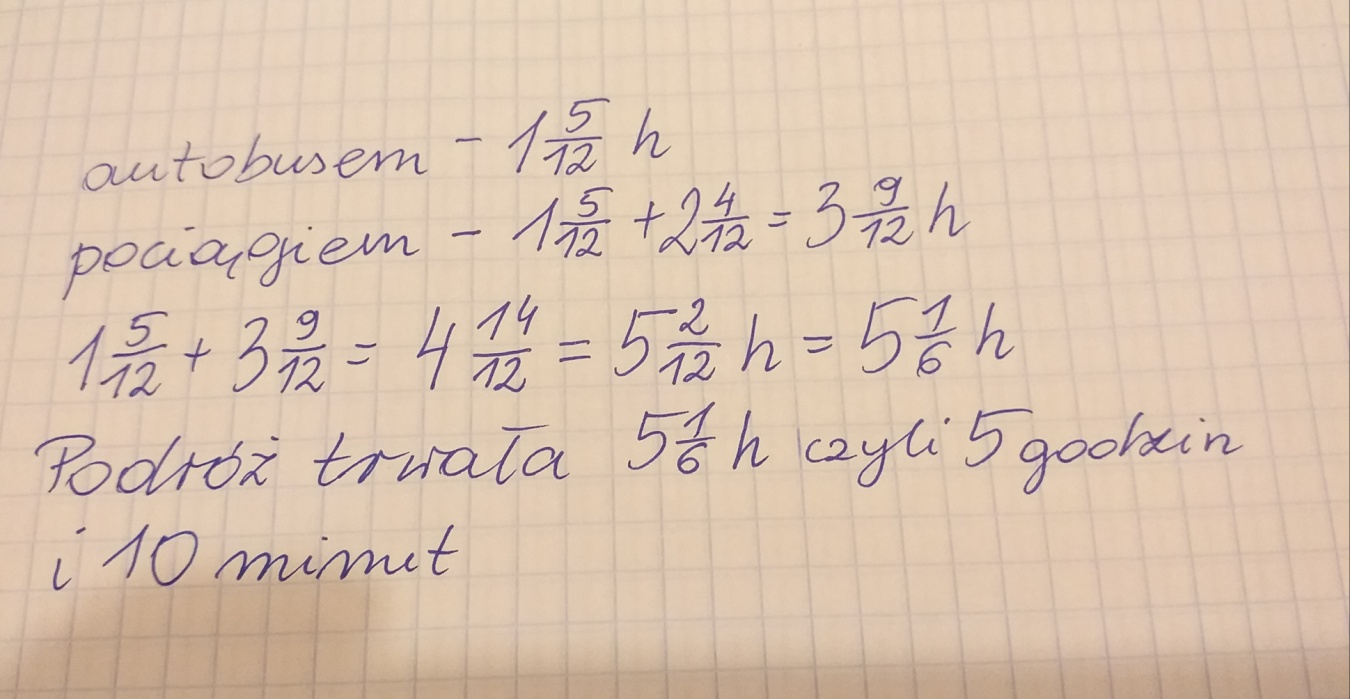 autobusem - 1 5/12 h
pociągiem - 1 5/12 + 2 4/12 = 3 9/12 h
1 5/12 + 3 9/12 = 4 14/12 = 5 2/12 h = 5 1/6 h
Podróż trwała 5 1/6 h czyli 5 godzin
i 10 minut